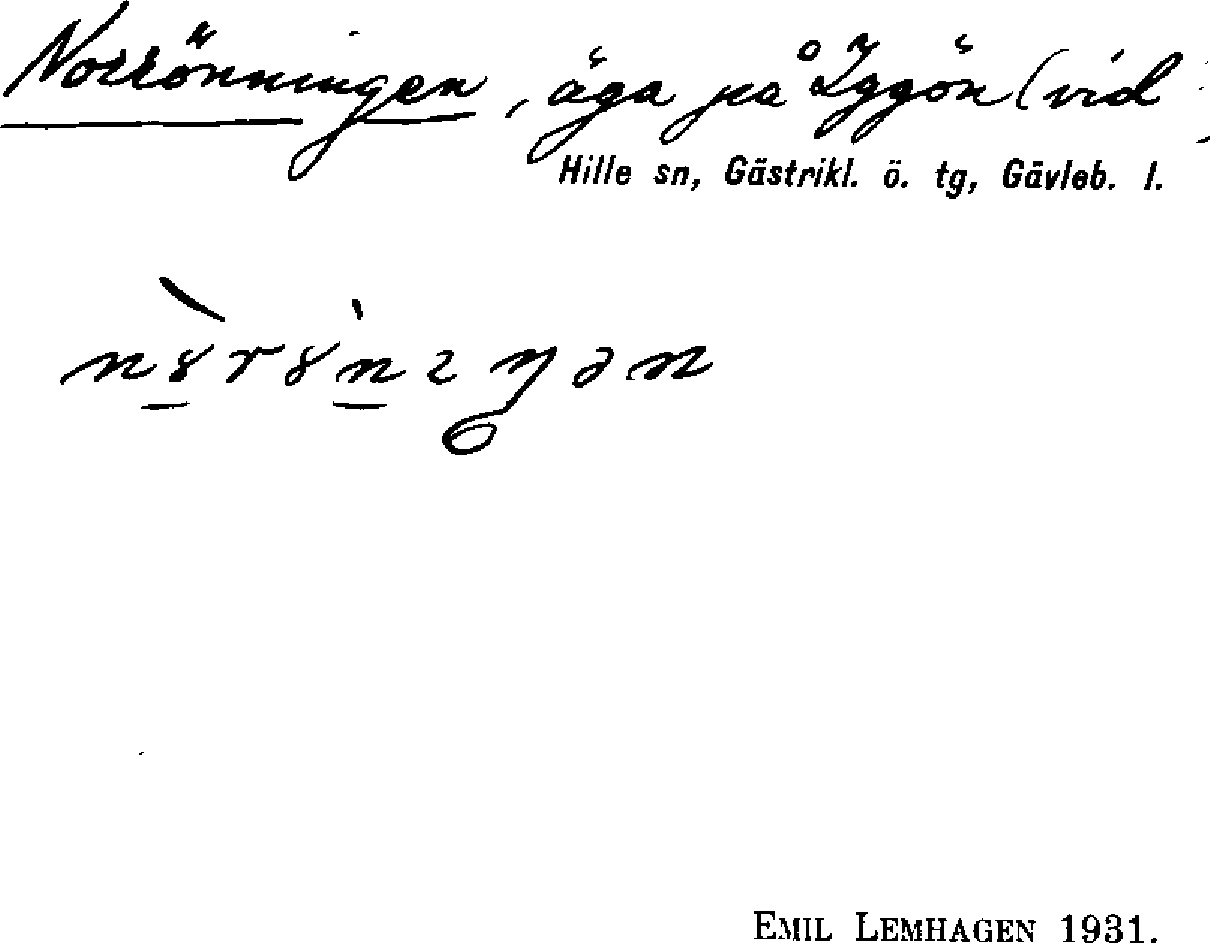 Norrönningen, äga på Iggön (vid
Hille sn, Gästrikl. ö. tg, Gävleb. l.
EMIL LEMHAGEN 1931.